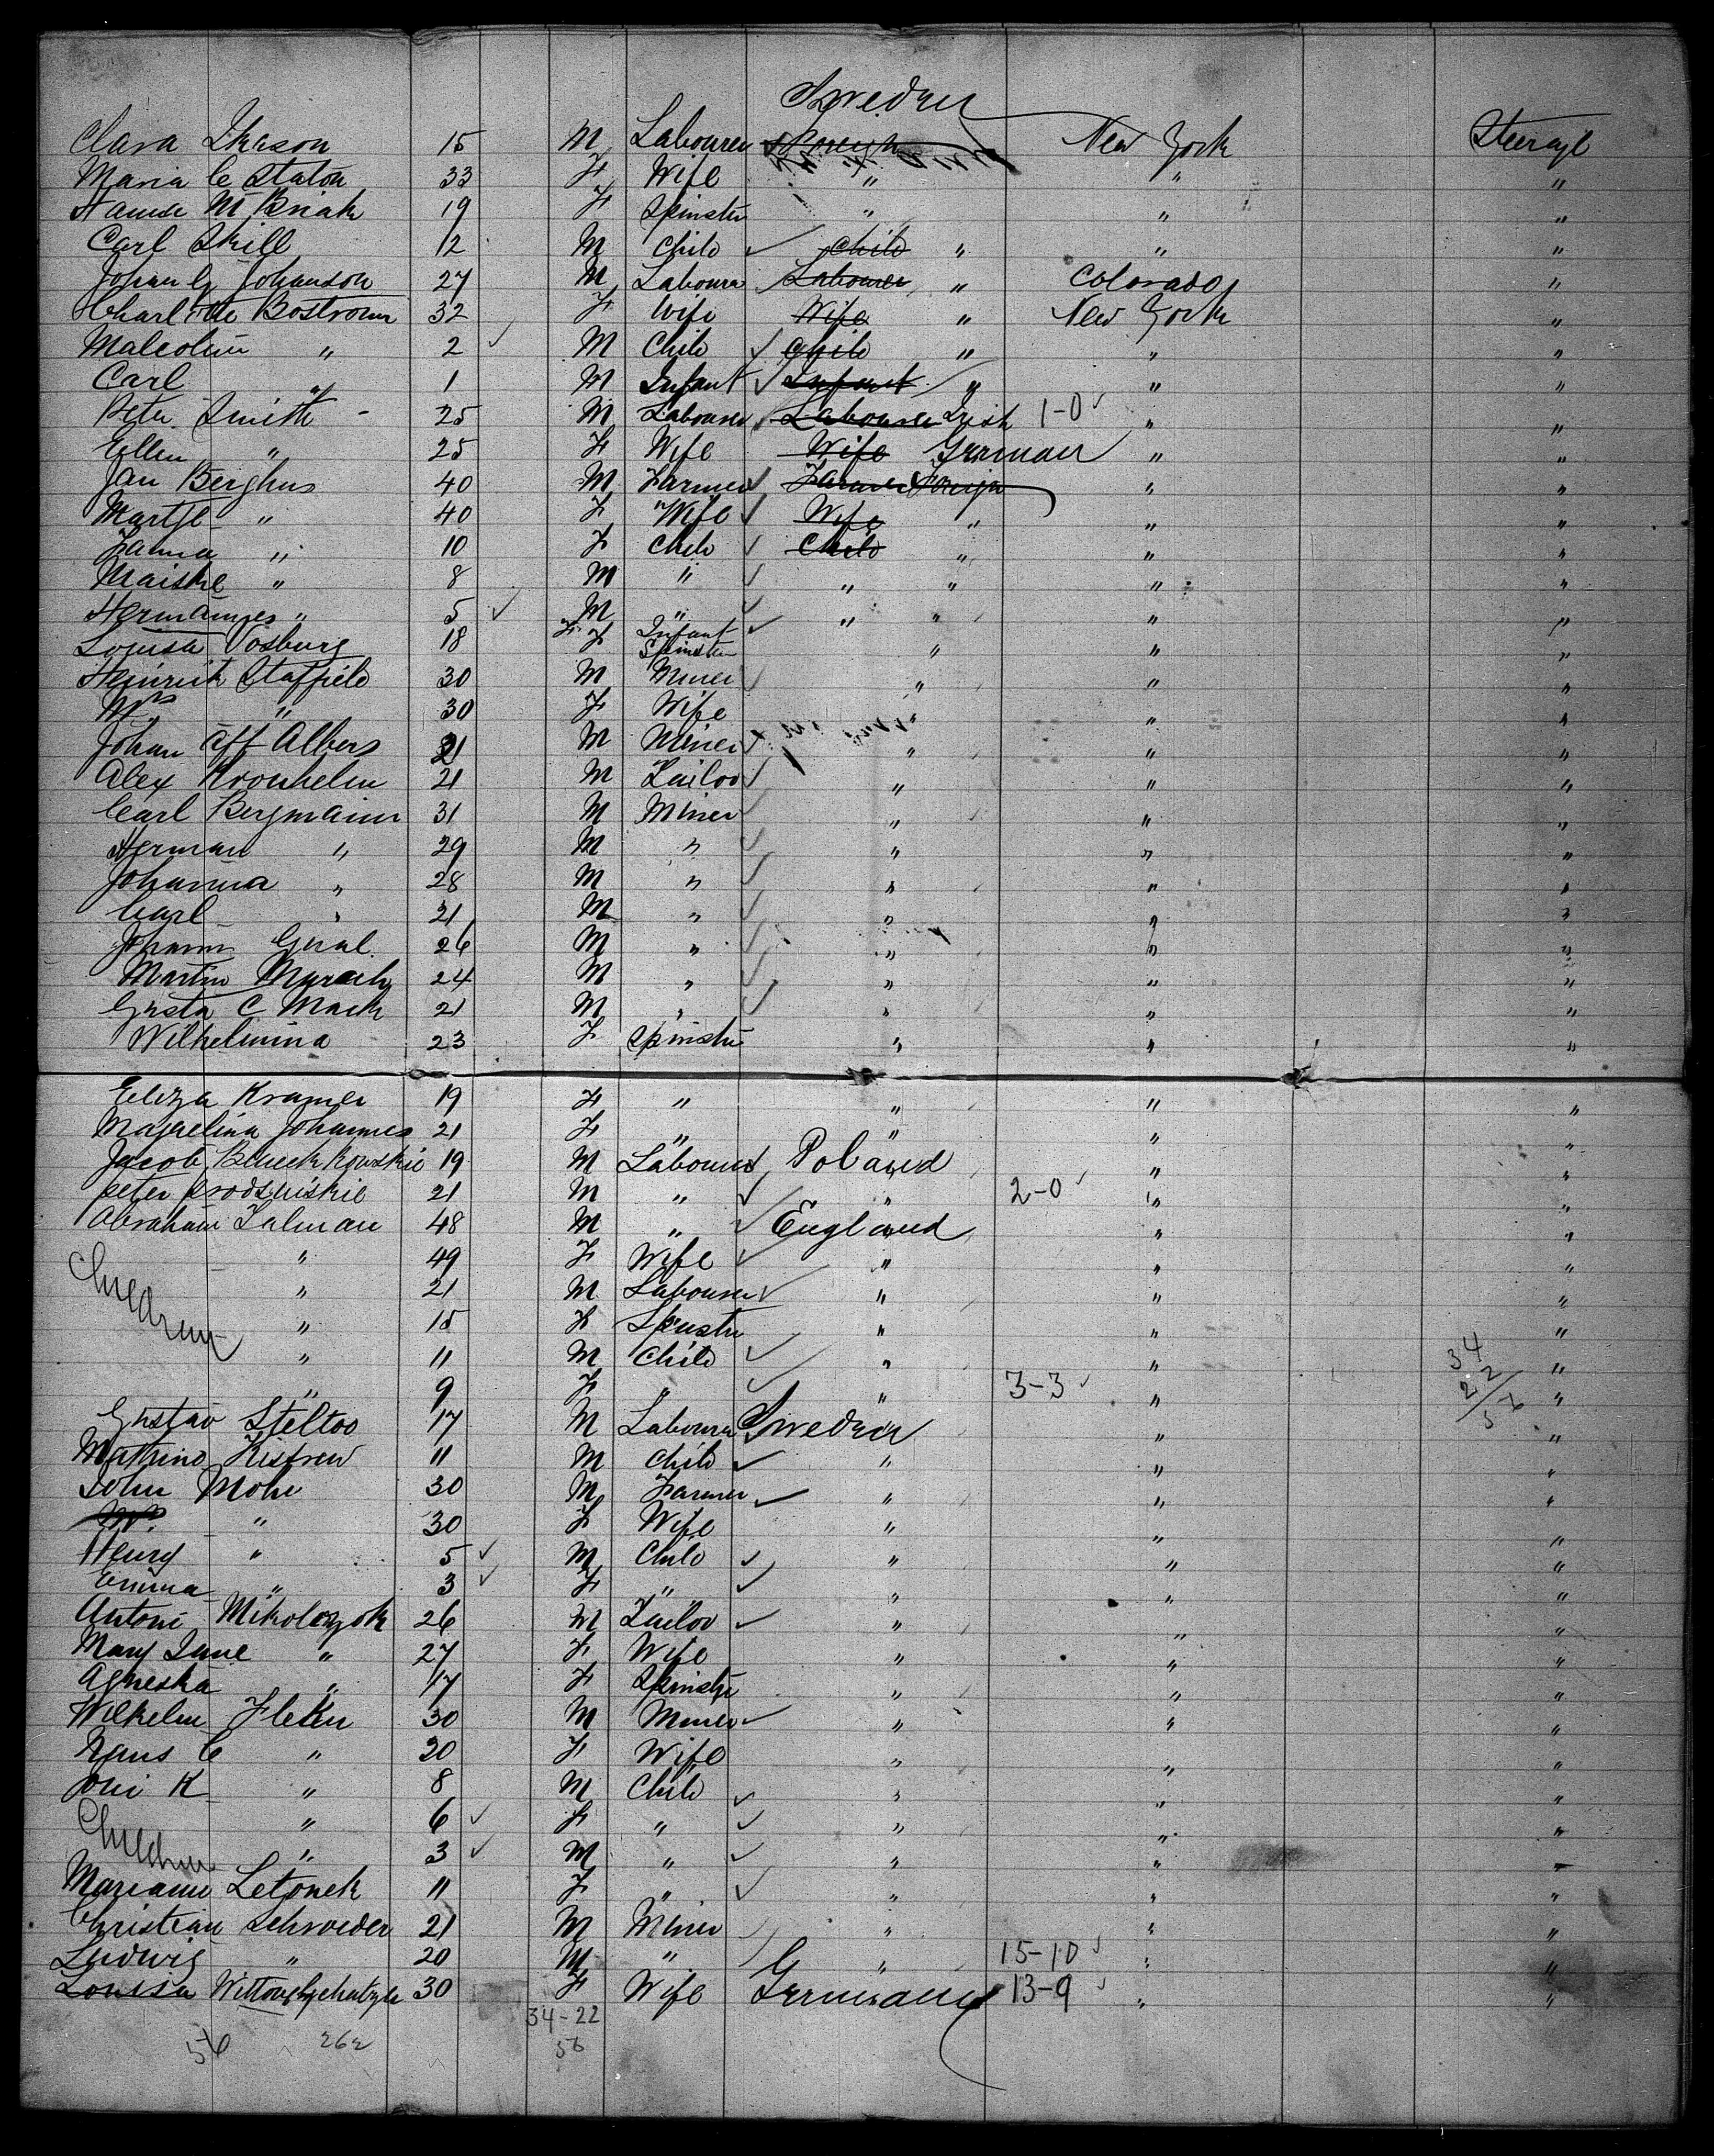 Sweden
Clara 15 M Labourer New York Steerage
Maria C Staton 33 F Wife " " "
M Briak 19 F Spinster " " "
Carl Skill 12 M Child Child " " "
Johan G Johanson 27 M Labourer Labourer " Colorado "
Charlotte Bostrom 32 F Wife Wife " New York "
Malcolm " 2 M Child Child " " "
Carl " 1 M Infant Infant " " "
Peter Smith 25 M Labourer Labourer Irish 1-0 " "
Ellen " 25 F Wife Wife German " "
Jan Berghus 40 M Farmer Farmer Foreign " "
Martje " 40 F Wife Wife " " "
Fanna " 10 F Child Child " " "
Maiske " 8 M " " " " "
Hermannes " 5 M " " " " "
Louisa Vosburg 18 F F Infant Spinster " " "
Heinrich Staffield 30 M Miner " " "
Mrs " 30 F Wife " " "
Johan Aff Albers 21 M Miner " " "
Alex Kronhelm 21 M Tailor " " "
Carl Bergmann 31 M Miner " " "
Herman " 29 M " " " "
Johanna " 28 M " " " "
Carl " 21 M " " " "
Johann 26 M " " " "
Martin 24 M " " " "
Gusta C Mack 21 M " " " "
Wilhelmina 23 F Spinster " " "
Eliza Kramer 19 F " " " "
Johannes 21 F " " " "
Jacob 19 M Labourer Poland " "
Peter 21 M " " 2-0 " "
Abraham Talman 48 M " England " "
" 49 F Wife " " "
Children " 21 M Labourer " " "
" 15 F Spinster " " "
" 11 M Child " " 34 "
" 9 F " " 3-3 " 22/56 "
Gustav Steltos 17 M Labourer Sweden " "
11 M Child " " "
John Mohr 30 M Farmer " " "
Mrs " 30 F Wife " " "
Henry " 5 M Child " " "
Emma " 3 F " " " "
Antoni Mikolczok 26 M Tailor " " "
Mary Jane " 27 F Wife " " "
Agneska " 17 F Spinster " " "
Wilhelm 30 M Miner " " "
Hans C " 20 F Wife " " "
K " 8 M Child " " "
Children " 6 F " " " "
" 3 M " " " "
Mariann Letonek 11 F " " " "
Christian Schroeder 21 M Miner " " "
Ludwig " 20 M " " 15-10 " "
Louisa 30 F Wife Germany 13-9 " "
34-22
56 262 56